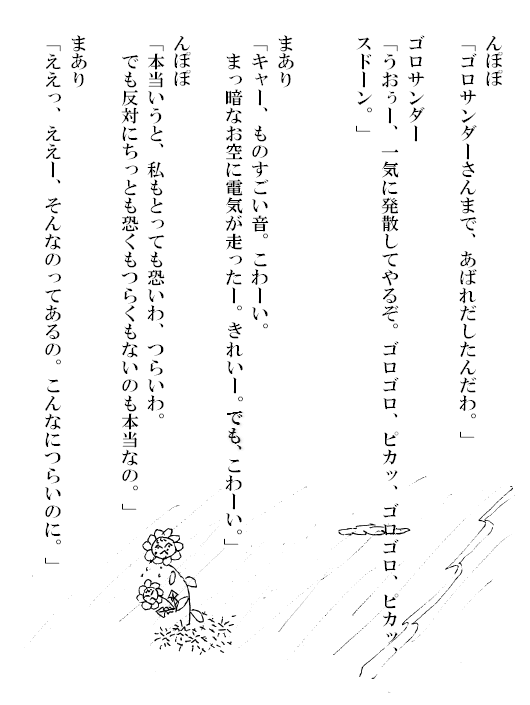 んぽぽ
「ゴロサンダーさんまで、あばれだしたんだわ。」
ゴロサンダー
「うおぅー、一気に発散してやるぞ。ゴロゴロ、ピカッ、ゴロゴロ、ピカッ、
スドーン。」
まあり
「キャー、ものすごい音。こわーい。
まっ暗なお空に電気が走ったー。きれいー。でも、こわーい。」
んぽぽ
「本当いうと、私もとっても恐いわ、つらいわ。
でも反対にちっとも恐くもつらくもないのも本当なの。」
まあり
「ええっ、ええー、そんなのってあるの。こんなにつらいのに。」